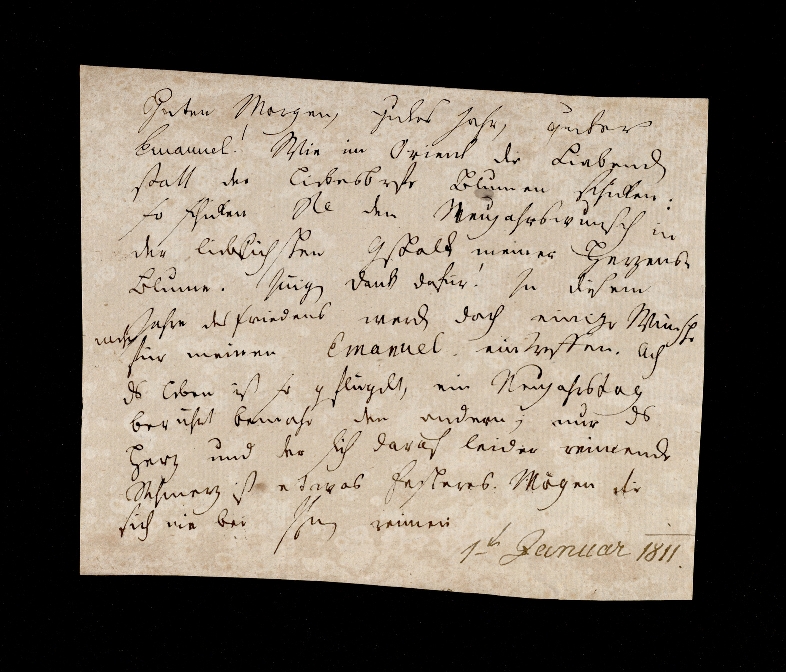 Guten Morgen, gutes Jahr, guter
Emanuel! Wie im Orient die Liebend
statt der Liebesbriefe Blumen schicken:
so schicken Sie den Neujahrswunsch in
der lieblichsten Gestalt meiner Herzens-
Blume. Innig Dank dafür! In diesem
Jahre des Friedens werd doch einige Wünsche
für meinen Emanuel eintreffen. Ach
das Leben ist so geflügelt, ein Neujahrstag
berührt beinahe den andern; nur das
Herz und der sich darauf leider reimende
Schmerz ist etwas Festeres. Mögen die
sich nie bei Ihnen reimen
1ten Januar 1811.